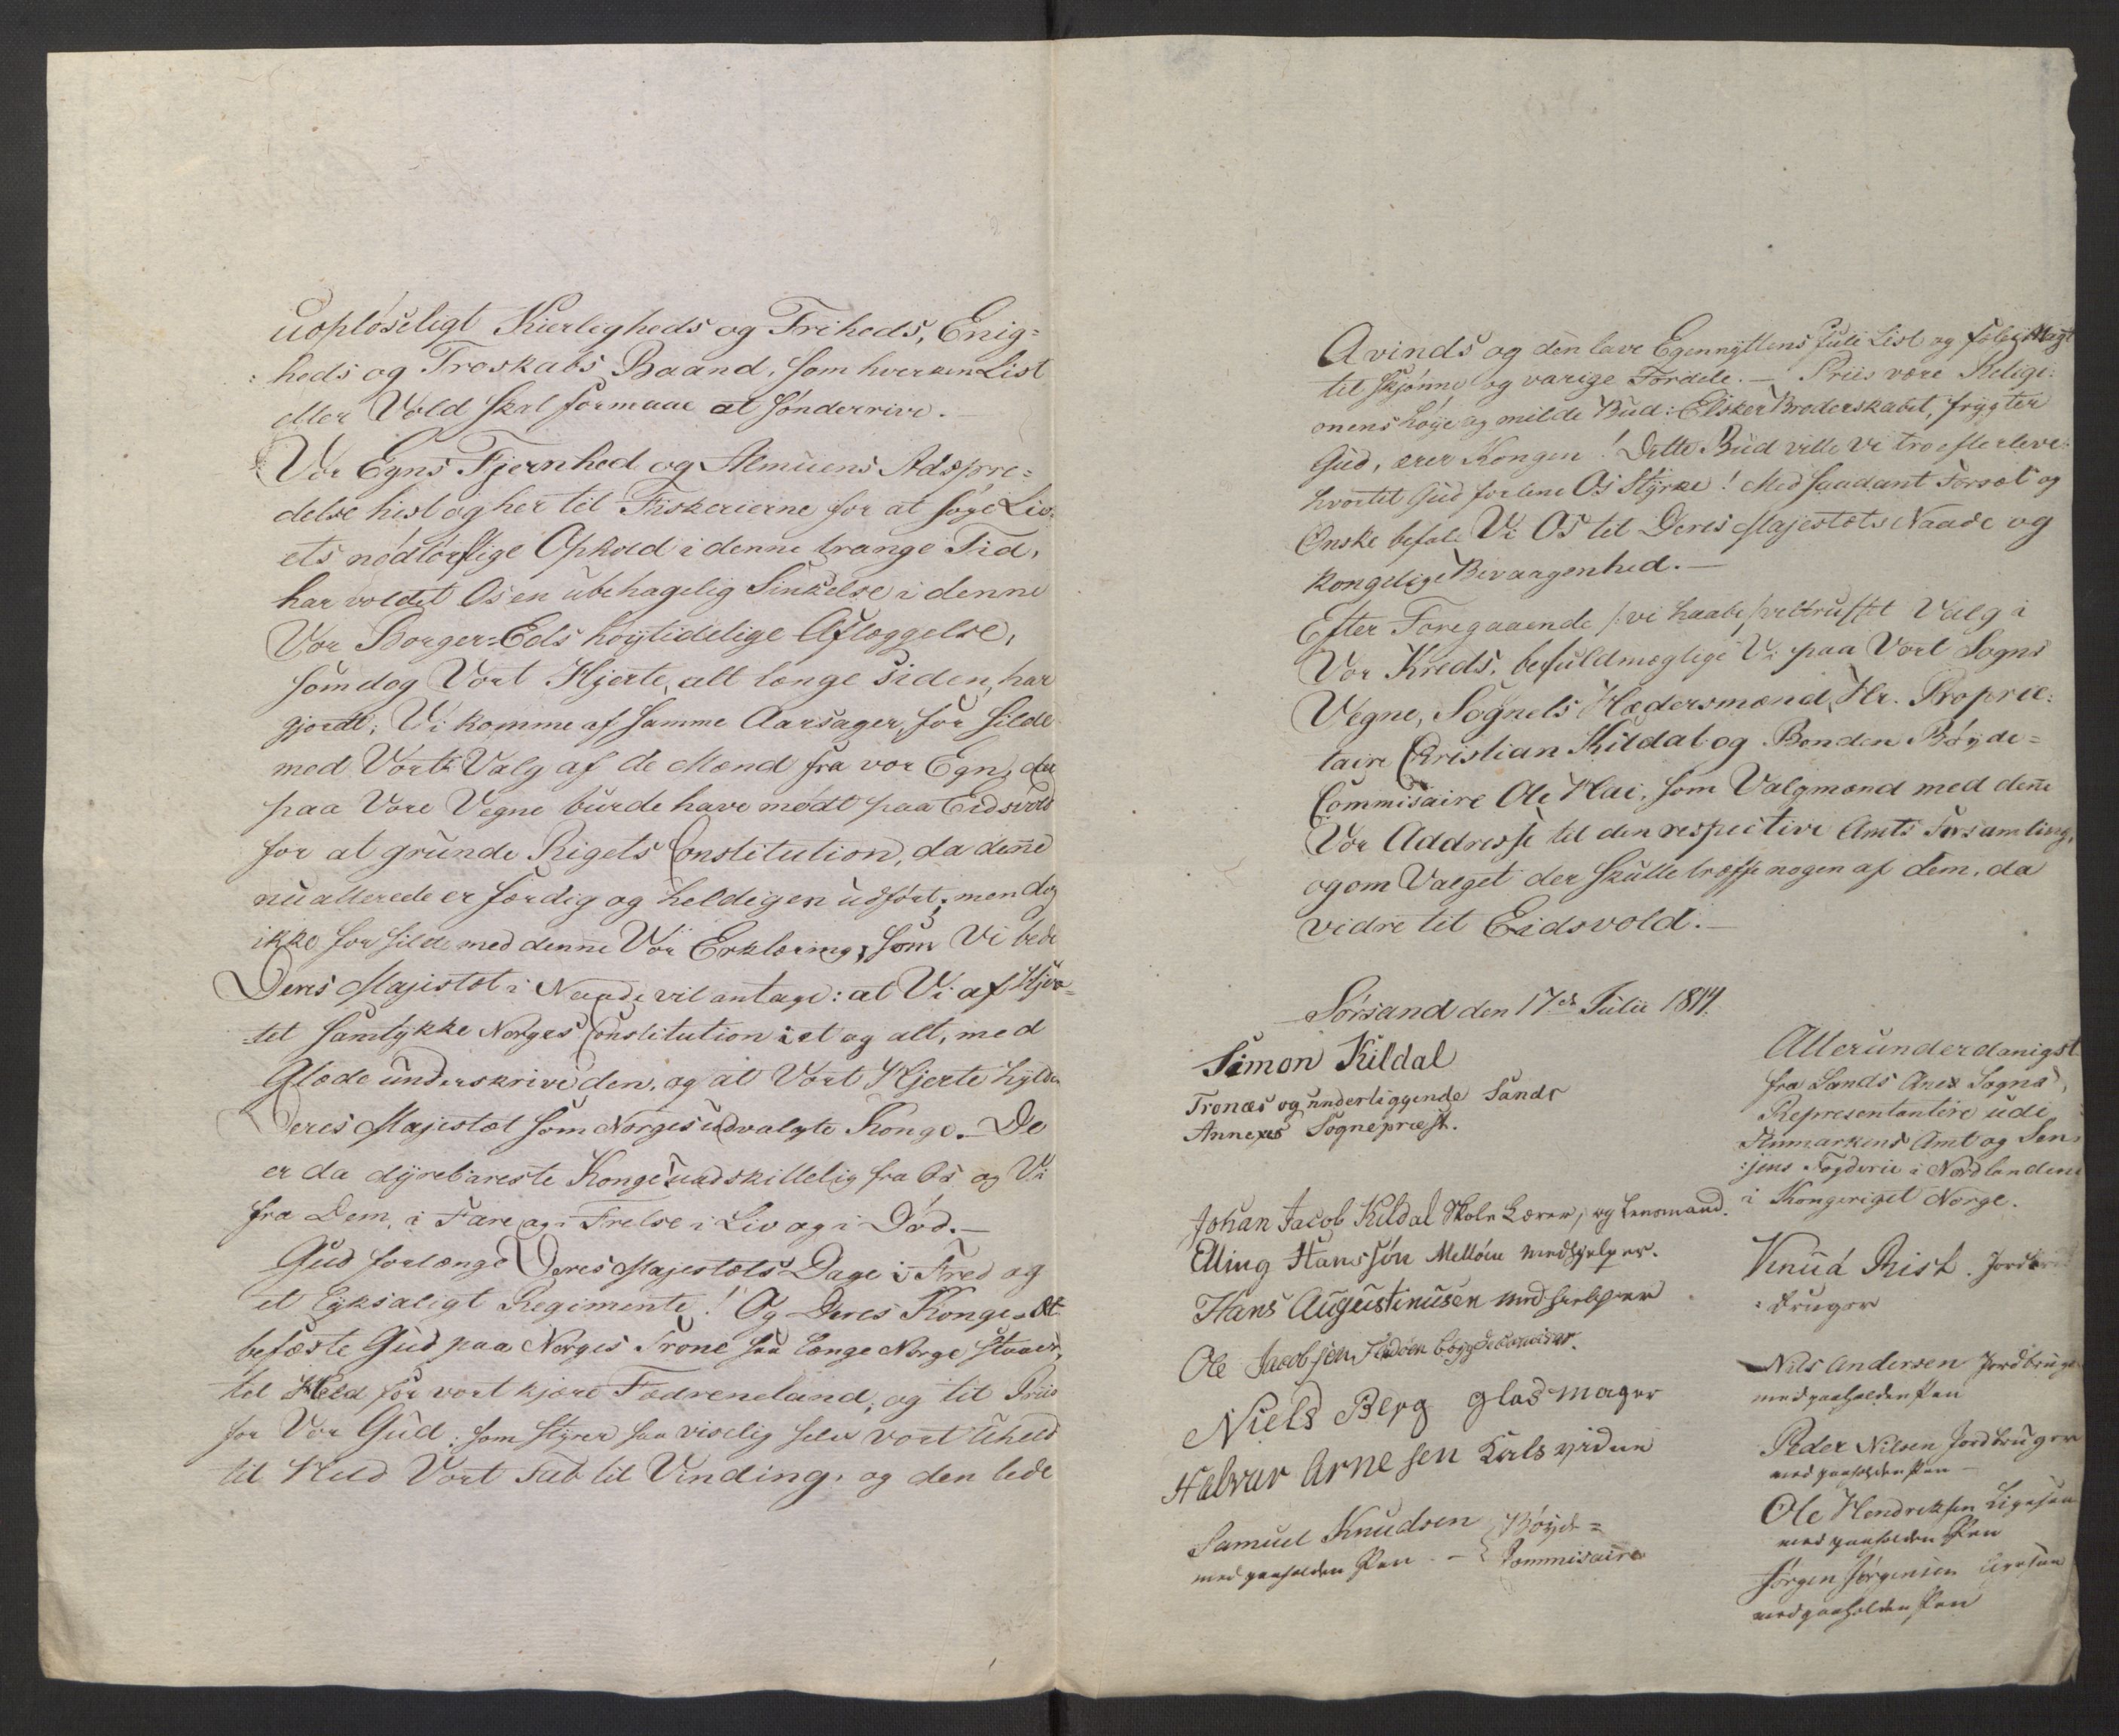 uopløseligt Kierligheds og Friheds, Enig=
heds og Troskabs Baand, som hverken List
eller Vold skal formaae at sønderrive. —
Vor Egns Fjernhed og Almuens Adspre=
delse hist og her til Fiskerierne for at søge Liv
ets nødtørftige Ophold i denne trange Tid,
har voldet Os en ubehagelig Sinkelse i denne
Vor Borger=Eds høytidelige Aflæggelse,
som dog Vort Hjerte, alt længe siden, har
gjordt; Vi komme af samme Aarsager, for silde
med Vort Valg af de Mænd fra vor Egn, der
paa Vore Vegne burde have mødt paa Eidsvold
for at grunde Rigets Constitution, da denne
nu allerede er færdig og heldigen udført; men dog
ikke for silde med denne Vor Erklæring, som Vi bede
Deres Majestæt i Naade vil antage: at Vi af Hjer=
=tet samtykke Norges Constitution i et og alt, med
Glæde underskrive den, og at Vort Hjerte hylder
Deres Majestæt som Norges udvalgte Konge. — De
er da dyrebareste Konge! uadskillelig fra Os og Vi
fra Dem, i Fare og i Frelse i Liv og i Død. —
Gud forlænge Deres Majestæts Dage i Fred og
et lyksaligt Regimente! Og Deres Konge=Æt
befæste Gud paa Norges Trone saa længe Norge staaer,
til Held for vort kjære Fædreneland, og til Priis
for Vor Gud; som styrer saa viselig selv vort Uheld
til Held Vort Tab til Vinding, og den lede
Avinds og den lave Egennyttens fule List og Magt
til skjønne og varige Fordele. — Priis være Religi=
onens høye og milde Bud: Elsker Broderskabet, frygter
Gud, ærer Kongen! Dette Bud ville Vi troe efterleve
hvortil Gud forlene Os Styrke! Med saadant Forsæt og
Ønske befale Vi Os til Deres Majestæts Naade og
kongelige Bevaagenhed. —
Efter Foregaaende /: vi haabe :/ veltruffet Valg i
Vor Kreds, befuldmægtige Vi paa Vort Sogns
Vegne, Sognets Hædersmænd, Hr. Proprie=
taire Christian Kildal og Bonden Bøyde=
Commisaire Ole Hai, som Valgmænd med denne
Vor Addresse til den respective Amts Forsamling,
og om Valget der skulle træffe nogen af dem, da
vidre til Eidsvold. —
Sørsand den 17de Julii 1814.
Simon Kildal
Tronæs og underliggende Sands
Annexes Sognepræst.
Allerunderdanigst
fra Sands Anex Sogns
Representantere udi
Finmarkens Amt og Sen
=jens Fogderie i Nordlandene
i Kongeriget Norge.
Johan Jacob Kildal Skole Lærer, og Lensmand.
Elling Hanssøn medhjelper.
Hans Augustinusen medhielper
Ole Jacobsen
Niels Berg glasmager
Halvar Arnesen
Samuel Knudsen Bøyde=
med paaholden Pen. — Commisaire
Rist. Jord
=bruger
Nils Andersen Jordbruger
med paaholden Pen
Peder Nilsen Jordbruger
med paaholden Pen —
Ole Hendriksen
med paaholden Pen
Jørgen Jørgensen
med paaholden Pen